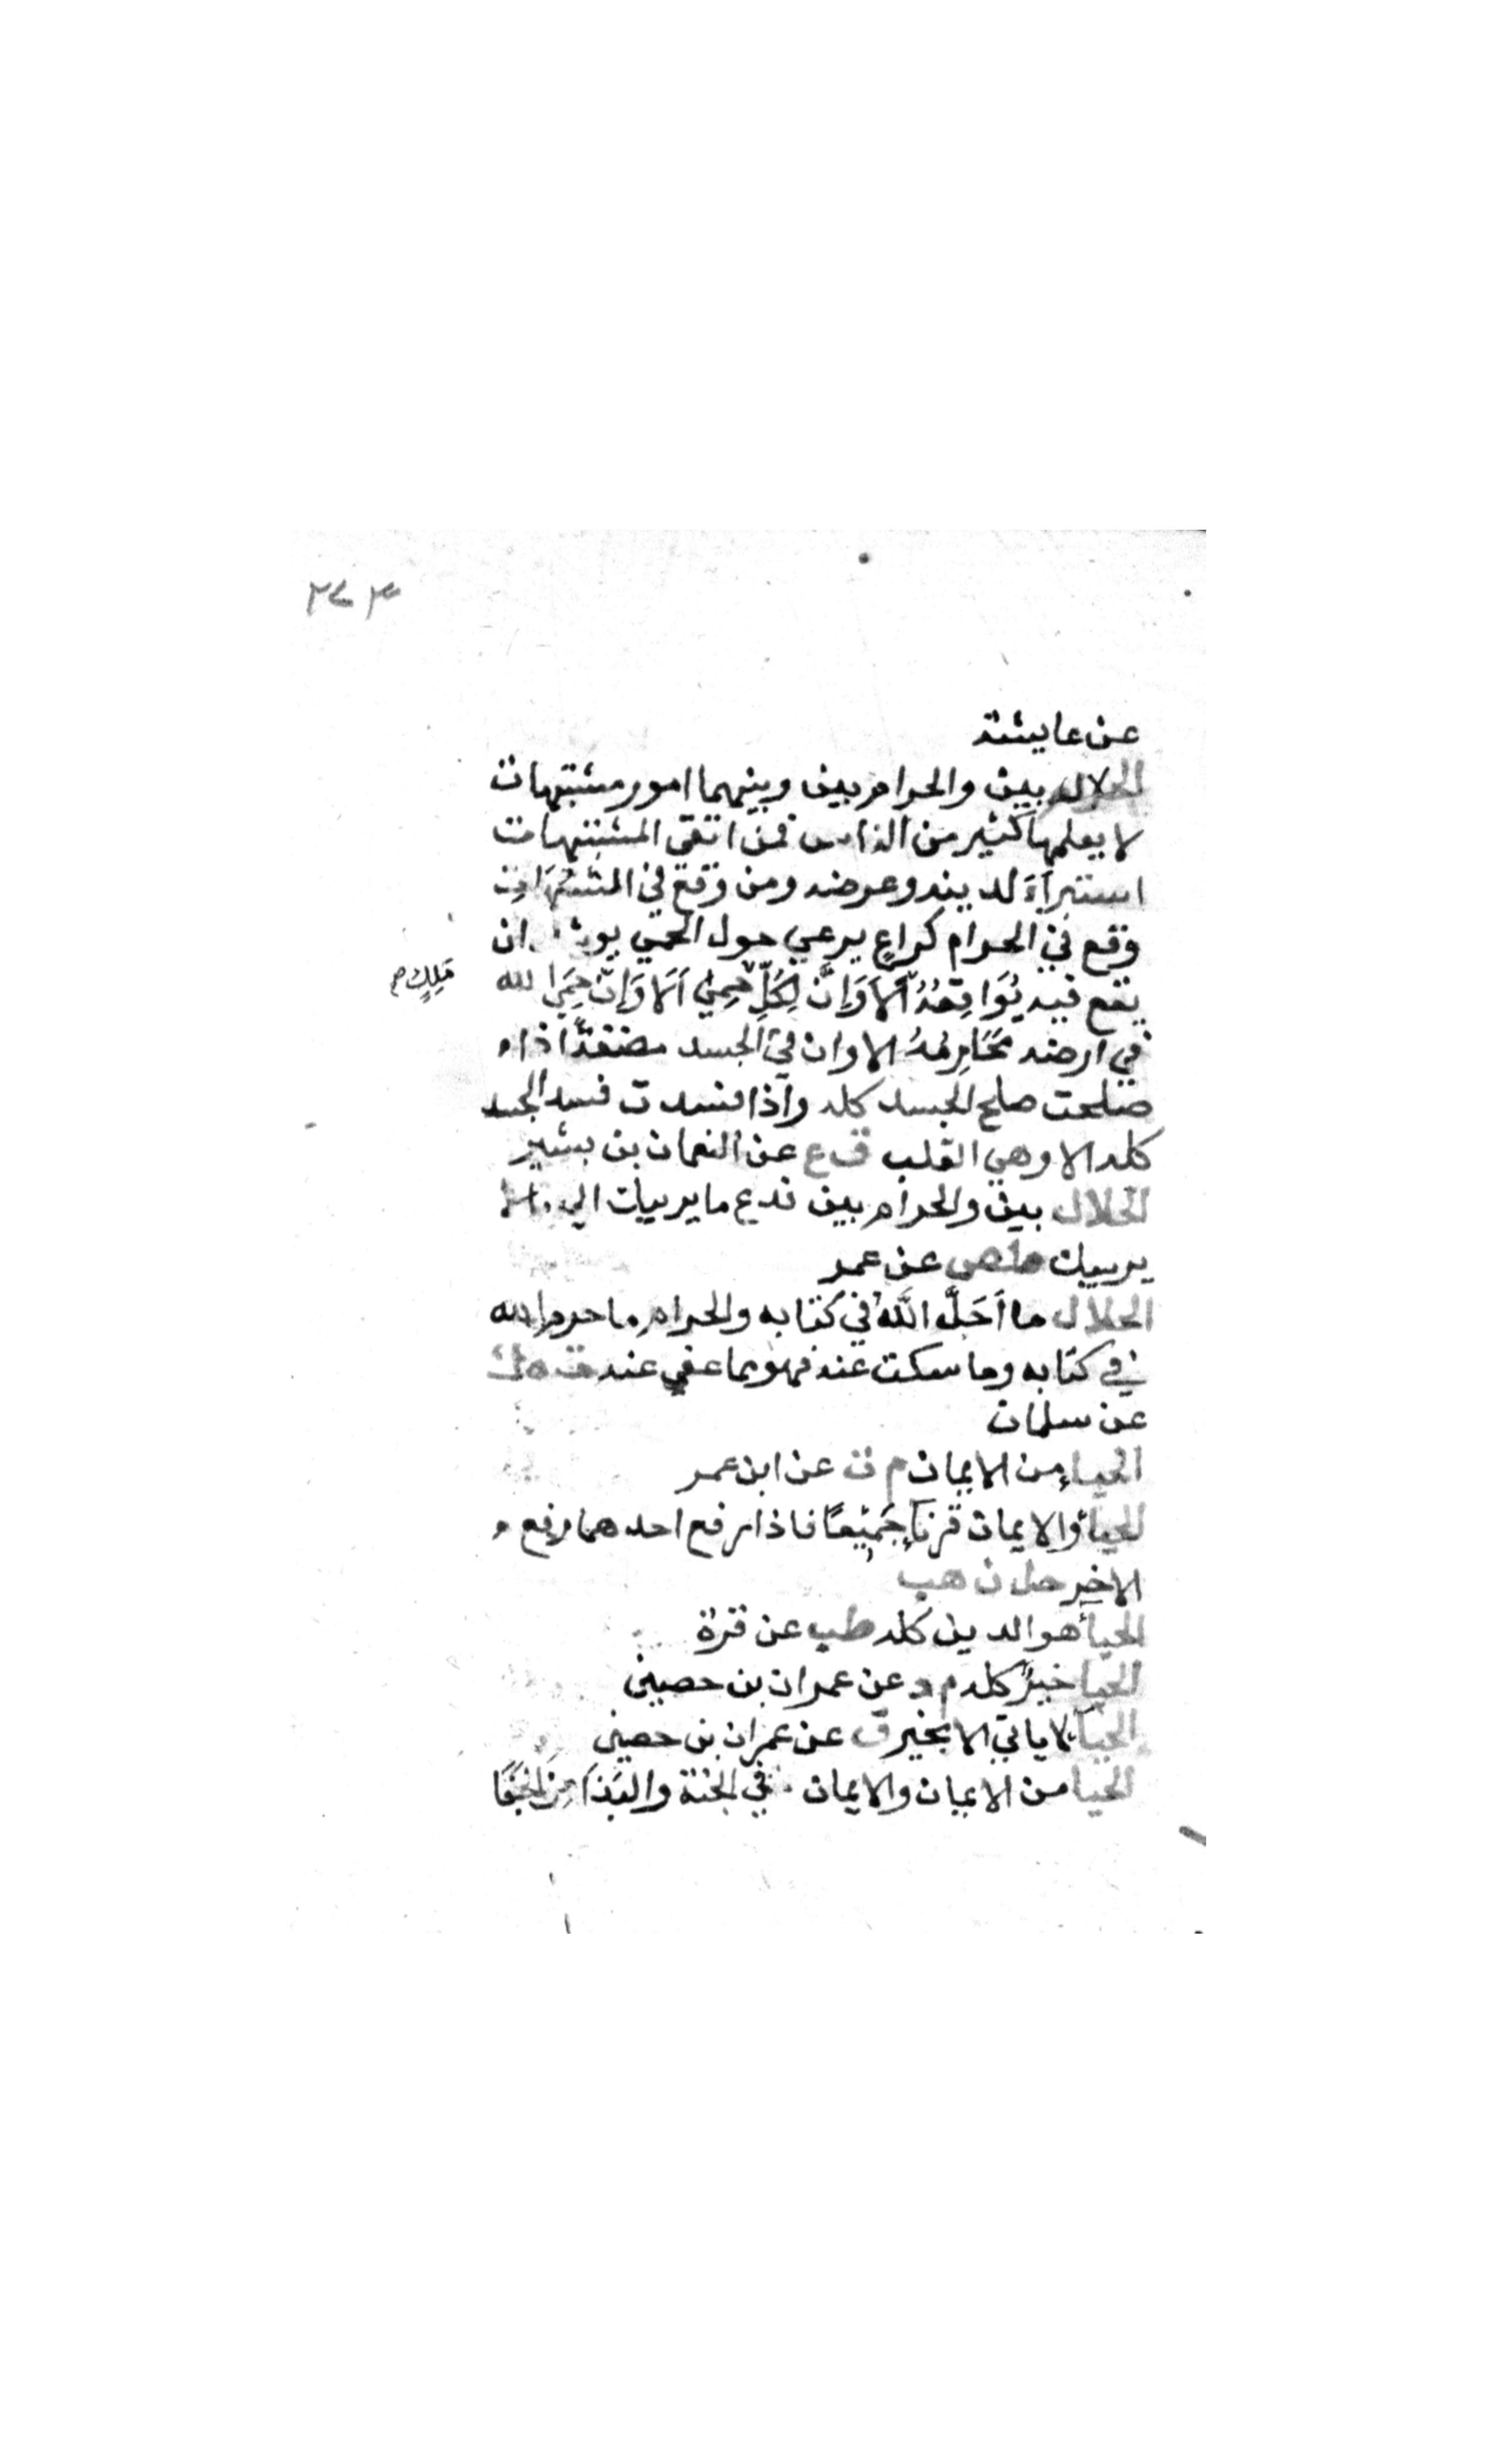 ٢٤٣
عن عايشة
الحلال بين والحرام بين وبينهما امور مشتبهات
لا يعلمها كثير من الناس فمن اتقى المشتبهات
استبرَأَ لدينه وعرضه ومن وقع في المشتبهات
وقع في الحرام كراعٍ يرعي حول الحمي يوشك ان
يقع فيه يُوَاقِعُهُ اَلَا وَاِنَّ لِكُلِّ حِمىً اَلَا وَاِنَّ حِمَى الله
مَلِكٍ صح
في ارضه مَحَارِمُهُ الا وان في الجسد مضغةً اذا
صلحت صلح الجسد كله واذا فسدت فسد الجسد
كله الا وهي القلب ق ع عن النعمان بن بشير
الحلال بين والحرام بين فدع ما يريبك الي ما لا
يريبك طص عن عمر
الحلال ما اَحَلَّ اللَّهُ في كتابه والحرام ما حرم الله
في كتابه وما سكت عنه فهو مما عفي عنه ت ه ك
عن سلمان
الحياء من الايمان م ت عن ابن عمر
الحيأ والايمان قرنآ جَمِيْعًا فاذا رفع احدهما رفع
الاخر حل ك هب
الحيأ هو الدين كله طب عن قرة
الحيا خيرٌ كله م د عن عمران بن حصين
الحيآ لا ياتي الا بخير ق عن عمران بن حصين
الحيا من الايمان والايمان في الجنة والبَذَا مِنَ الجَفَا